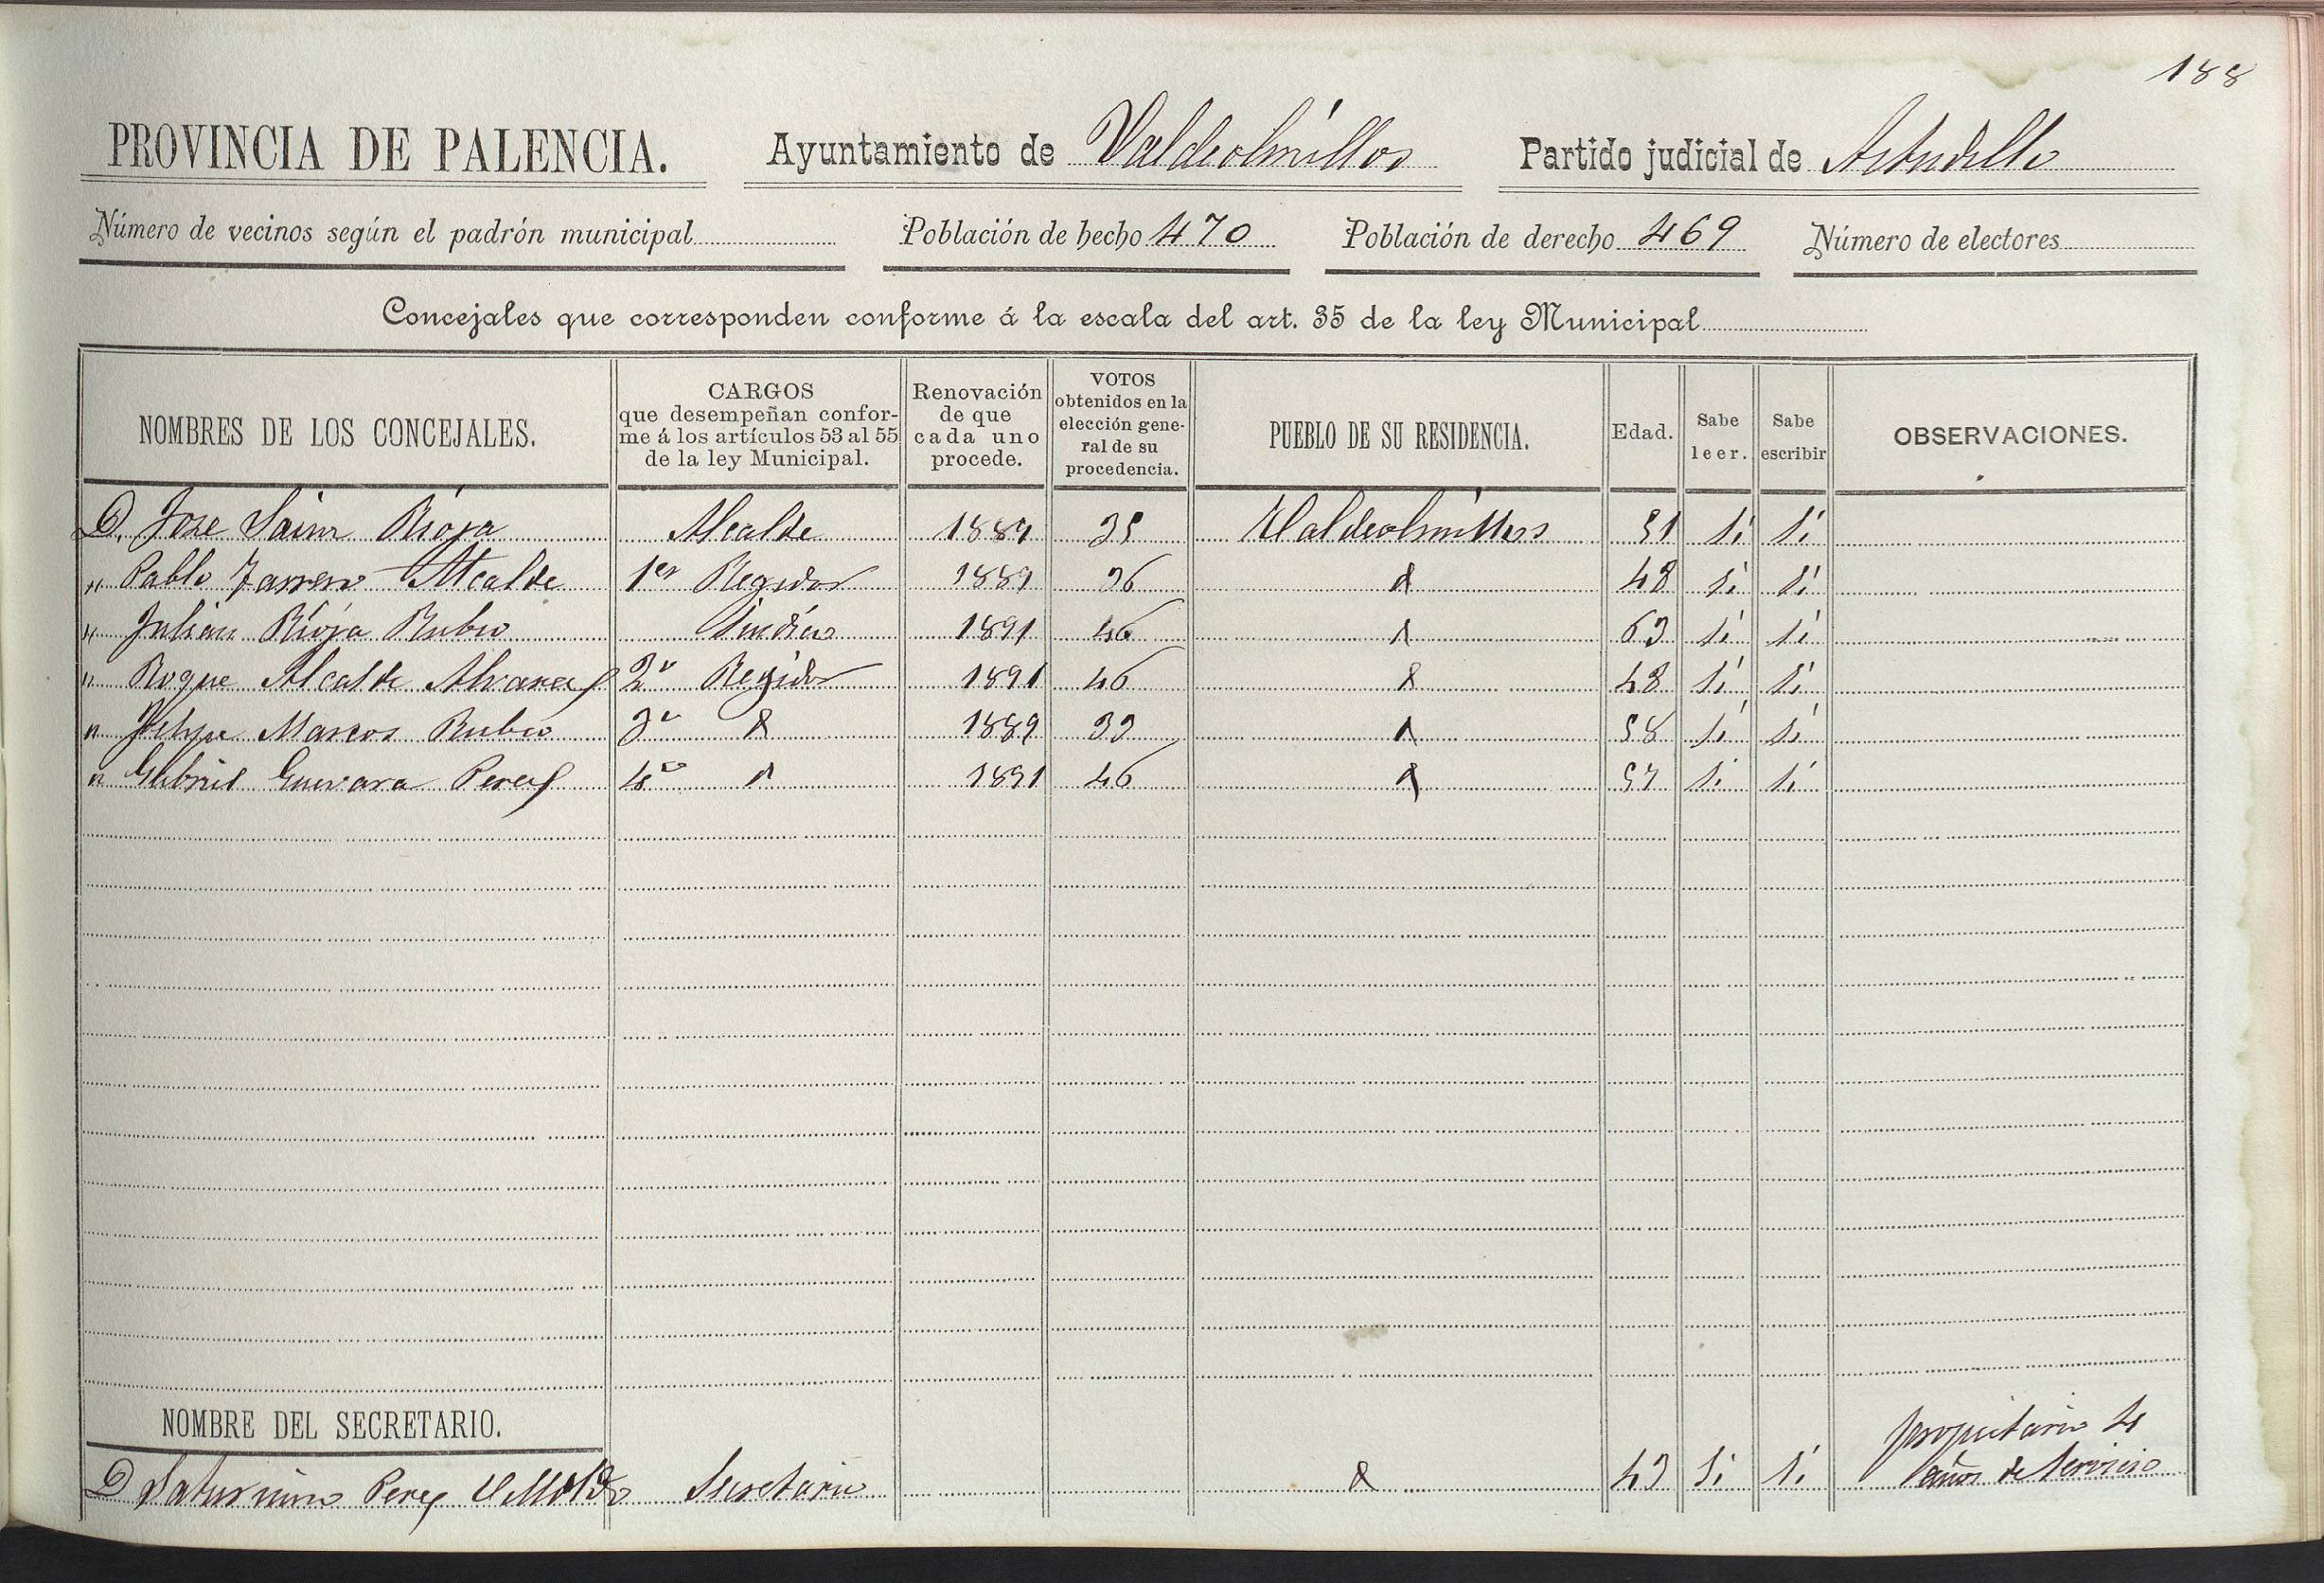 188
PROVINCIA DE PALENCIA. Ayuntamiento de Valdeolmillos Partido judicial de Astudillo
Número de vecinos según el padrón municipal Población de hecho 470 Población de derecho 469 Número de electores
Concejales que corresponden conforme á la escala del art. 35 de la ley Municipal
NOMBRES DE LOS CONCEJALES. CARGOS que desempeñan conforme á los artículos 53 al 55 de la ley Municipal. Renovación de que cada uno procede. VOTOS obtenidos en la elección general de su procedencia. PUEBLO DE SU RESIDENCIA. Edad. Sabe leer. Sabe escribir OBSERVACIONES.
D. Jose Rioja Alcalde 1889 35 Valdeolmillos 51 Si Si
" Pablo Alcalde 1er Regidor 1889 36 d 48 Si Si
" Julian Rioja Rubio Sindico 1891 46 d 63 Si Si
" Roque Alcalde Alvarez 2º Regidor 1891 46 d 48 Si Si
" Felipe Marcos Rubio 3º d 1889 33 d 58 Si Si
" Gabriel Guevara Perez 4º d 1891 46 d 57 Si Si
NOMBRE DEL SECRETARIO.
D Saturnino Perez Secretario d 43 Si Si propietario 4
años de Servicio